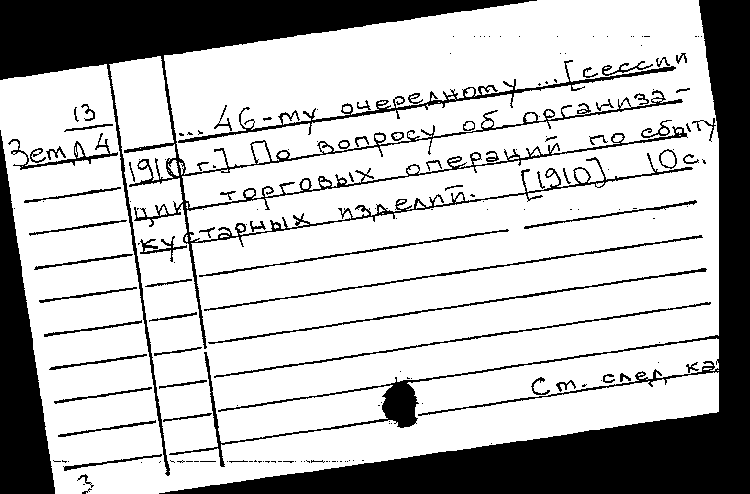 13
Зем Д 4
... 46-му очередному ... [сессии
1910 г.] По вопросу об организа-
ции торговых операций по сбыту
кустарных изделий. [1910]. 10 с.
См. след. ка
3